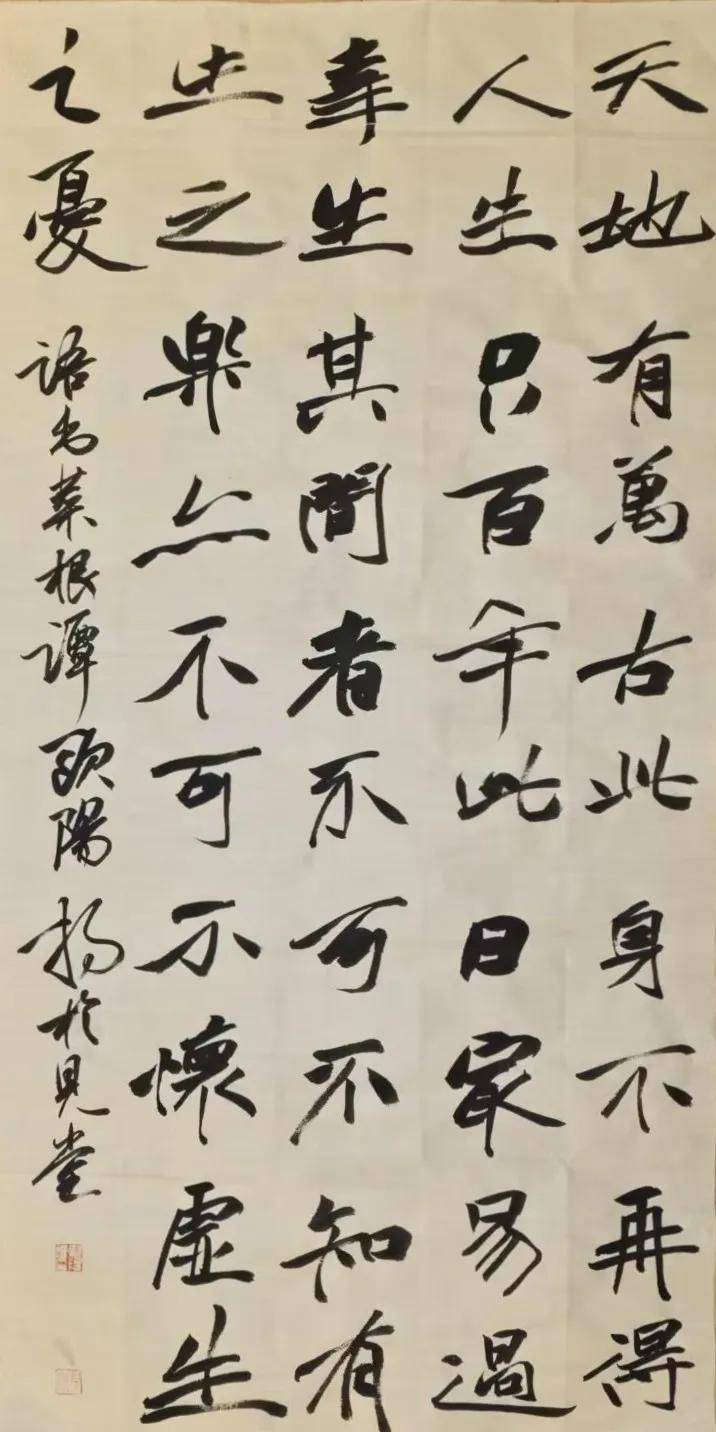 天地有萬古此身不再得
人生只百年此日最易過
幸生其間者不可不知有
生之樂亦不可不懷虛生
之憂
語出菜根譚歐陽揚於見堂